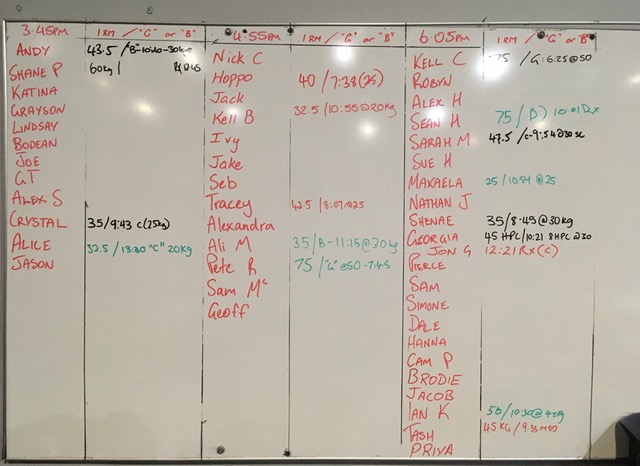 3:45PM 1RM / "G" or "B"
ANDY 43.5 / "B"-10:40-30kg
SHANE P 60kg |
KATINA
GRAYSON
LINDSAY
BODEAN
JOE
GT
ALEX S
CRYSTAL 35/9:43 C(25kg)
ALICE 32.5 / 13:30 "C" 20kg
JASON
4:55PM 1RM / "G" or "B"
Nick C
Hoppo 40 / 7:38(25)
Jack
Kell B 32.5 / 10:55@20kg
Ivy
Jake
Seb
Tracey 42.5 / 8:07@25
Alexandra
Ali M 35/B-11:15@30kg
Pete R 75 / "G" @50-7:45
Sam Mc
Geoff
6:05PM 1RM / "G" or "B"
KELL C 75 / G:6:25@50
ROBYN
ALEX H
SEAN H 75 / B) 10:01 Rx
SARAH M 47.5 / C-9:54@30
SUE H
MAKAELA 25 / 10:54 @25
NATHAN J
SHENAE 35/8:45@30kg
GEORGIA 45 HPC/10:21 HPC @30
JON G 12:21 Rx(C)
PIERCE
SAM
SIMONE
DALE
HANNA
CAM P
BRODIE
JACOB
IAN K 50/10:30@45kg
TASH 45 KG / 9:33
PRIYA